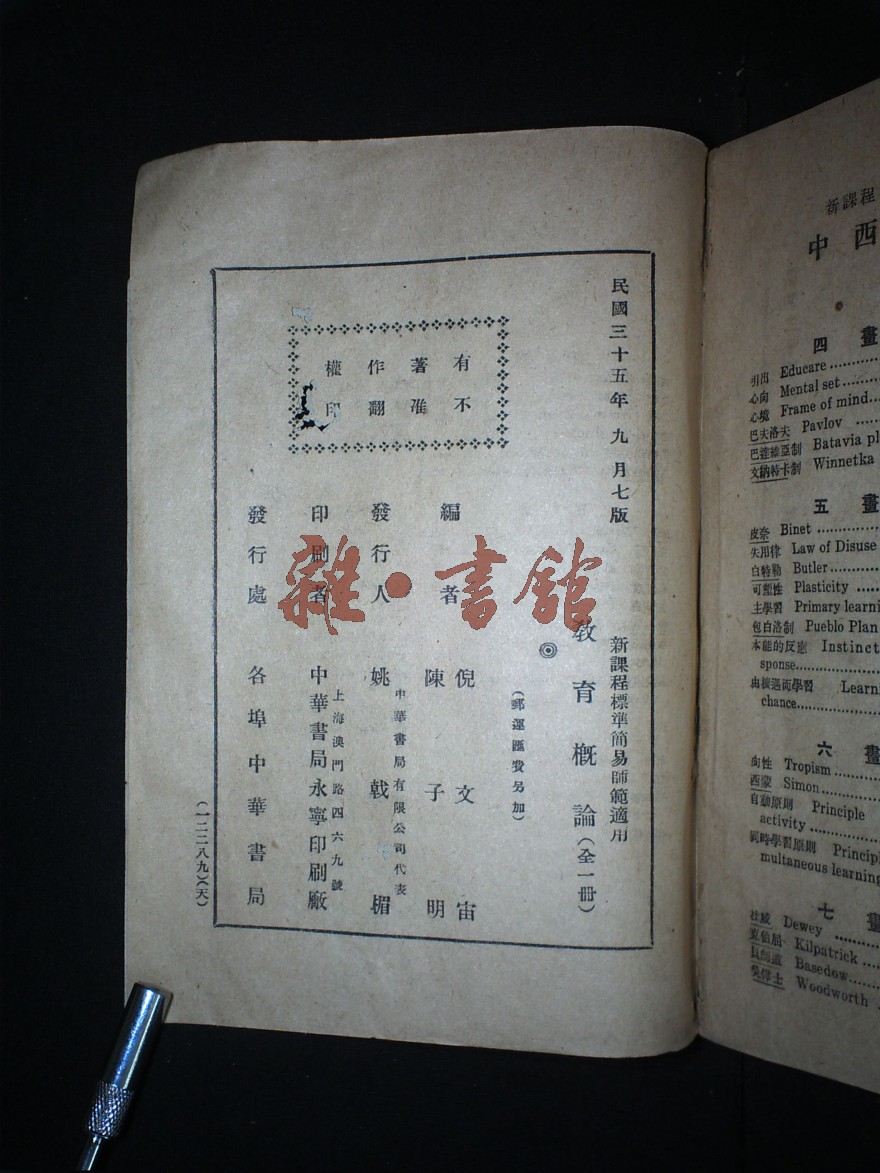 民國三十五年九月七版
新課程標準簡易師範適用
教育概論（全一冊）
◎
（郵運匯費另加）
有不
著准
作翻
權印
編者
倪文宙
陳子明
發行人
中華書局有限公司代表
姚戟楣
印刷者
上海澳門路四六九號
中華書局永寧印刷廠
發行處
各埠中華書局
（一二二八九）（天）
雜·書館
新課程
中西
四畫
引出 Educare
心向 Mental set
心境 Frame of mind
巴夫洛夫 Pavlov
巴達維亞制 Batavia pl
文納特卡制 Winnetka
五畫
皮奈 Binet
失用律 Law of Disuse
白特勒 Butler
可塑性 Plasticity
主學習 Primary learni
包白洛制 Pueblo Plan
本能的反應 Instinct
sponse
由機遇而學習 Learni
chance
六畫
向性 Tropism
西蒙 Simon
自動原則 Principle
activity
同時學習原則 Princip
multaneous learning
七畫
杜威 Dewey
克伯屈 Kilpatrick
Basedow
吳偉士 Woodworth